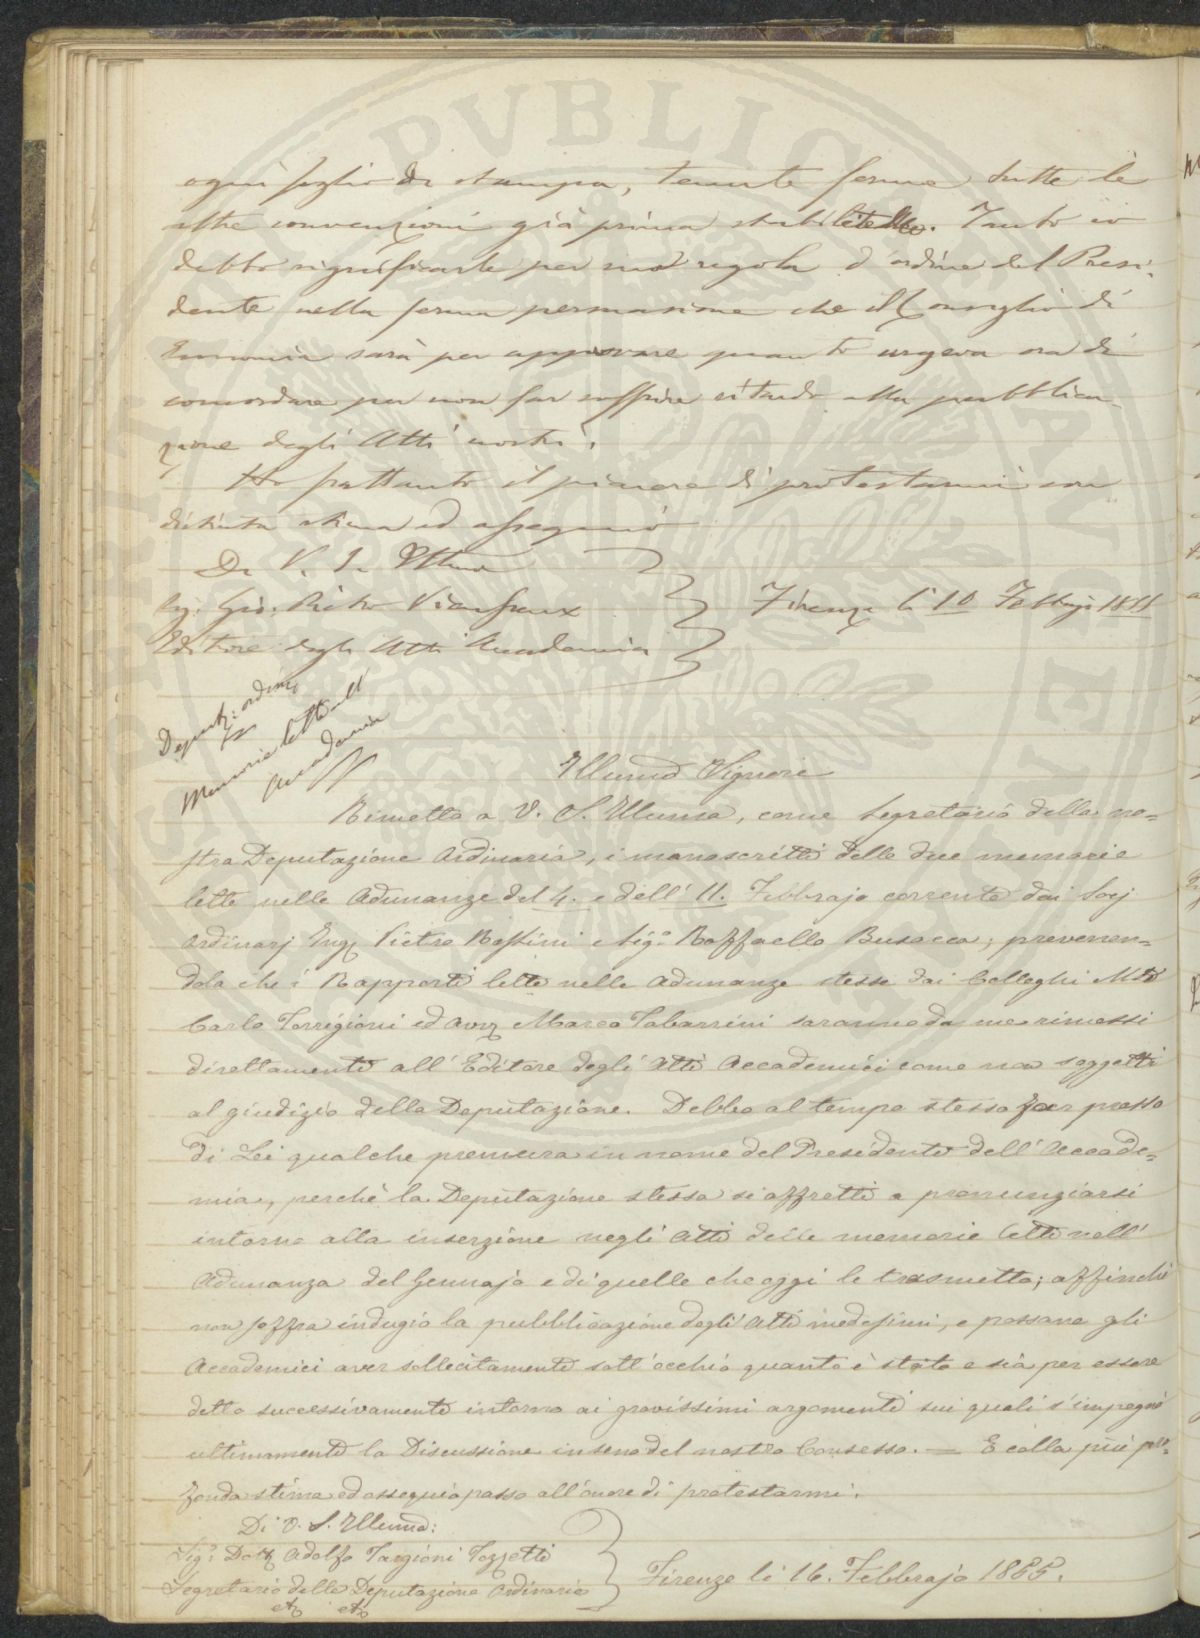 ogni foglio di stampa, tenute ferme tutte le
altre convenzioni già prima stabilite. Tanto io
debbo significarle per sua regola d'ordine del Presi-
dente nella ferma persuasione che il Consiglio di
Economia sarà per approvare quanto urgeva ora di
concordare per non far soffrire ritardo alla pubblica-
zione degli Atti nostri.
Ho frattanto il piacere di protestarmi con
distinta stima ed ossequio
Di V. S. Illma
Sig. Gio. Pietro Vieusseux
Editore degli Atti Accademia
Firenze li 10 Febbrajo 1855
Deputaz: ordin:
Memorie lette nell'
Accademia
Illumo Signore
Rimetto a V. S. Illuma, come Segretario della no=
stra Deputazione Ordinaria, i manoscritti delle due memorie
lette nelle Adunanze del 4. e dell' 11. Febbrajo corrente dai Socj
Ordinarj Ing. Pietro Rossini e Sig.r Raffaello Busacca; prevenen=
dola che i Rapporti letti nelle Adunanze stesse dai Colleghi
Carlo Torrigiani ed Avv. Marco Tabarrini saranno da me rimessi
direttamente all' Editore degli Atti Accademici come non soggetti
al giudizio della Deputazione. Debbo al tempo stesso far presso
di Lei qualche premura in nome del Presidente dell' Accade=
mia, perchè la Deputazione stessa si affretti a pronunziarsi
intorno alla inserzione negli Atti delle memorie lette nell'
Adunanza del Gennajo e di quelle che oggi le trasmetto; affinchè
non soffra indugio la pubblicazione degli Atti medesimi, e possano gli
Accademici aver sollecitamente sott' occhio quanto è stato e sia per essere
detto successivamente intorno ai gravissimi argomenti sui quali s'impegnò
ultimamente la Discussione in seno del nostro Consesso. — E colla più pro=
fonda stima ed ossequio passo all' onore di protestarmi.
Di V. S. Illuma:
Sig.r Dott. Adolfo Targioni Tozzetti
Segretario della Deputazione Ordinaria
Firenze li 16. Febbrajo 1855.